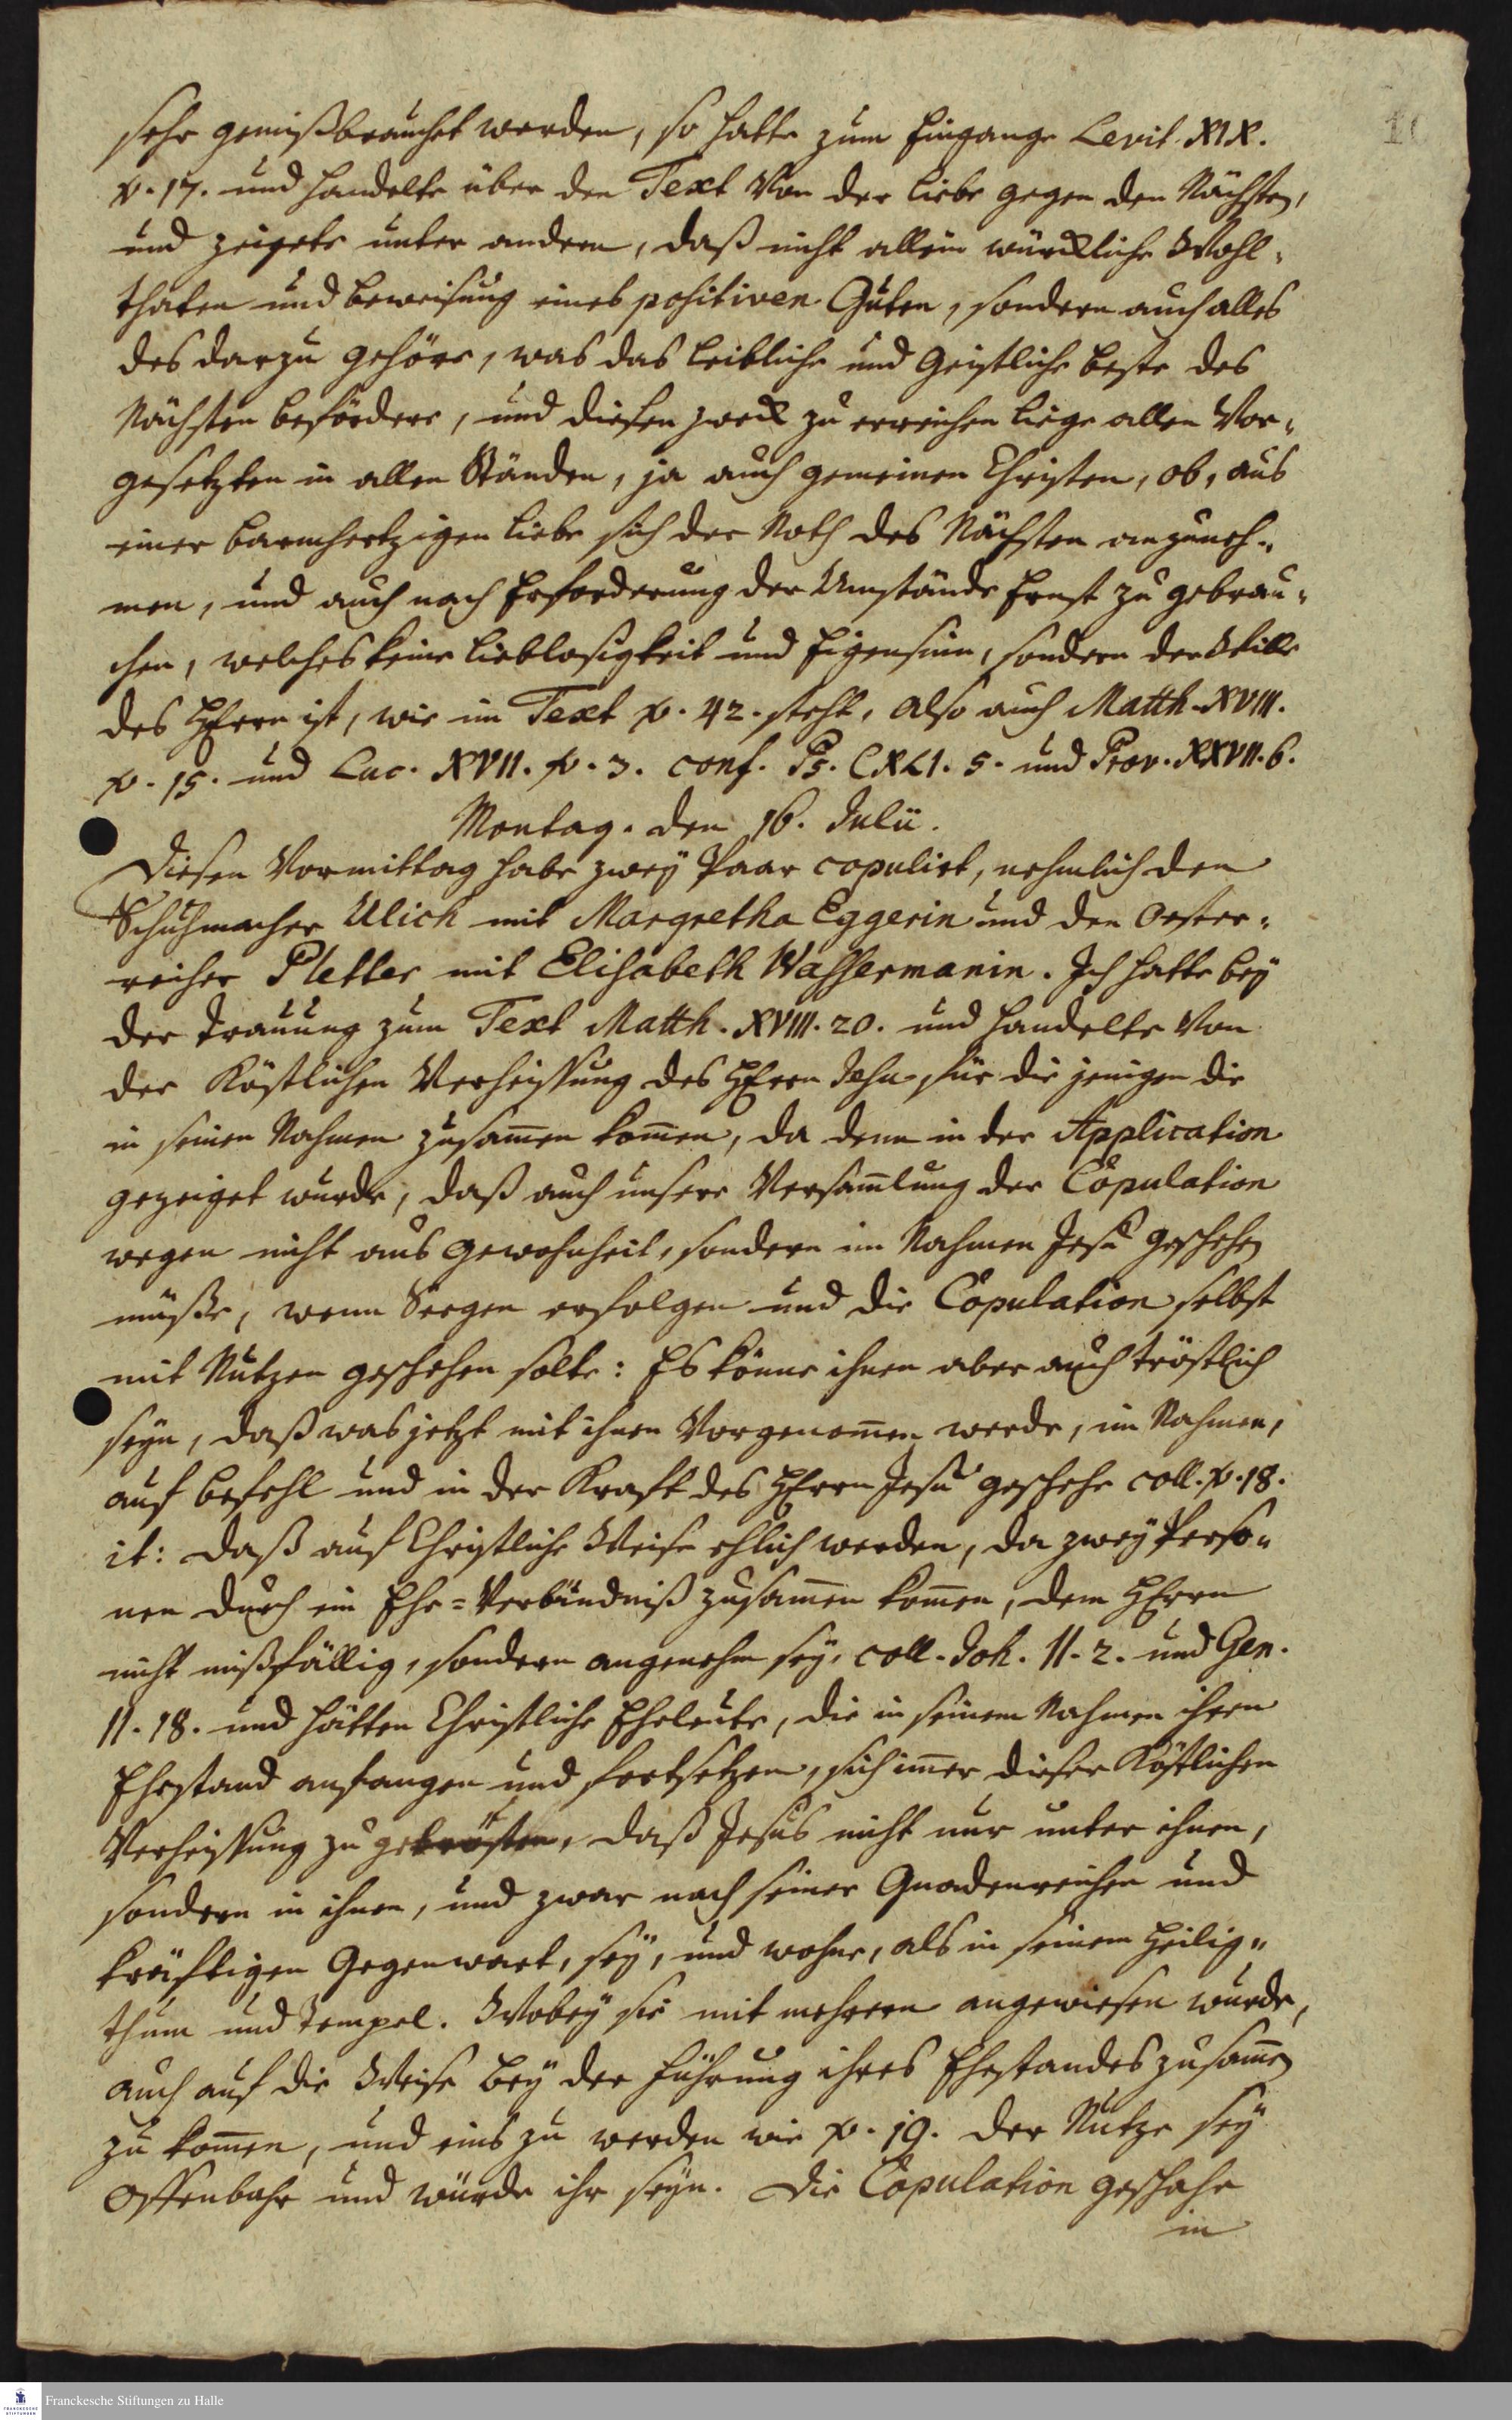 10
sehr gemißbrauchet werden, so hatte zum Eingange Levit. XIX.
v. 17. und handelte über den Text Von der Liebe gegen den Nächsten,
und zeigete unter andern, daß nicht allein würckliche Wohl-
thaten und Beweisung eines positiven Guten, sondern auch alles
das darzu gehöre, was das Leibliche und Geistliche Beste des
Nächsten befördere, und diesen Zweck zu erreichen liege allen Vor-
gesetzten in allen Ständen, ja auch gemeinen Christen, ob, aus
einer barmhertzigen Liebe sich der Noth des Nächsten anzuneh-
men, und auch nach Erforderung der Umstände Ernst zu gebrau-
chen, welches keine Lieblosigkeit und Eigensinn, sondern der Wille
des HErrn ist, wie im Text v. 42. steht, also auch Matth. XVIII.
v. 15. und Luc. XVII. v. 3. conf. Ps. CXLI. 5. und Prov. XXVII. 6.
Montag. den 16. Julii.
Diesen Vormittag habe zwey Paar copulirt, nehmlich den
Schuhmacher Ulich mit Margretha Eggerin und den Oester-
reicher Pletter mit Elisabeth Wassermanin. Ich hatte bey
der Trauung zum Text Matth. XVIII. 20. und handelte Von
der Köstlichen Verheissung des HErrn Jesu für die jenigen die
in seinen Nahmen zusam̅en kom̅en, da denn in der Application
gezeiget wurde, daß auch unsere Versam̅lung der Copulation
wegen nicht aus Gewohnheit, sondern im Nahmen Jesu geschehen
müsse, wenn Seegen erfolgen und die Copulation selbst
mit Nutzen geschehen solte: Es könne ihnen aber auch tröstlich
seyn, daß was jetzt mit ihnen Vorgenom̅en werde, im Nahmen,
auf Befehl und in der Kraft des HErrn Jesu geschehe coll. v. 18.
it: daß auf Christliche Weise ehlich werden, da zwey Perso-
nen durch ein Ehe-Verbündniß zusam̅en kom̅en, dem HErrn
nicht mißfällig, sondern angenehm sey, coll. Joh. II. 2. und Gen.
II. 18. und hätten Christliche Eheleute, die in seinem Nahmen ihren
Ehestand anfangen und fortsetzen, sich im̅er dieser Köstlichen
Verheissung zu getrösten, daß Jesus nicht nur unter ihnen,
sondern in ihnen, und zwar nach seiner Gnadenreichen und
kräftigen Gegenwart, sey, und wohne, als in seinem Heilig-
thum und Tempel. Wobey sie mit mehrern angewiesen wurde,
auch auf die Weise bey der Führung ihres Ehestandes zusam̅en
zu kom̅en, und eins zu werden wie v. 19. der Nutze sey
offenbahr und würde ihr seyn. Die Copulation geschahe
in
Franckesche Stiftungen zu Halle